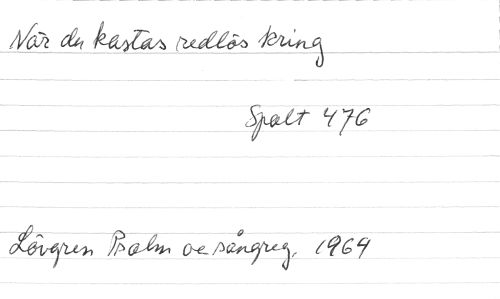 När du kastas redlös kring
Spalt 476
Lövgren Psalm oc sångreg. 1964